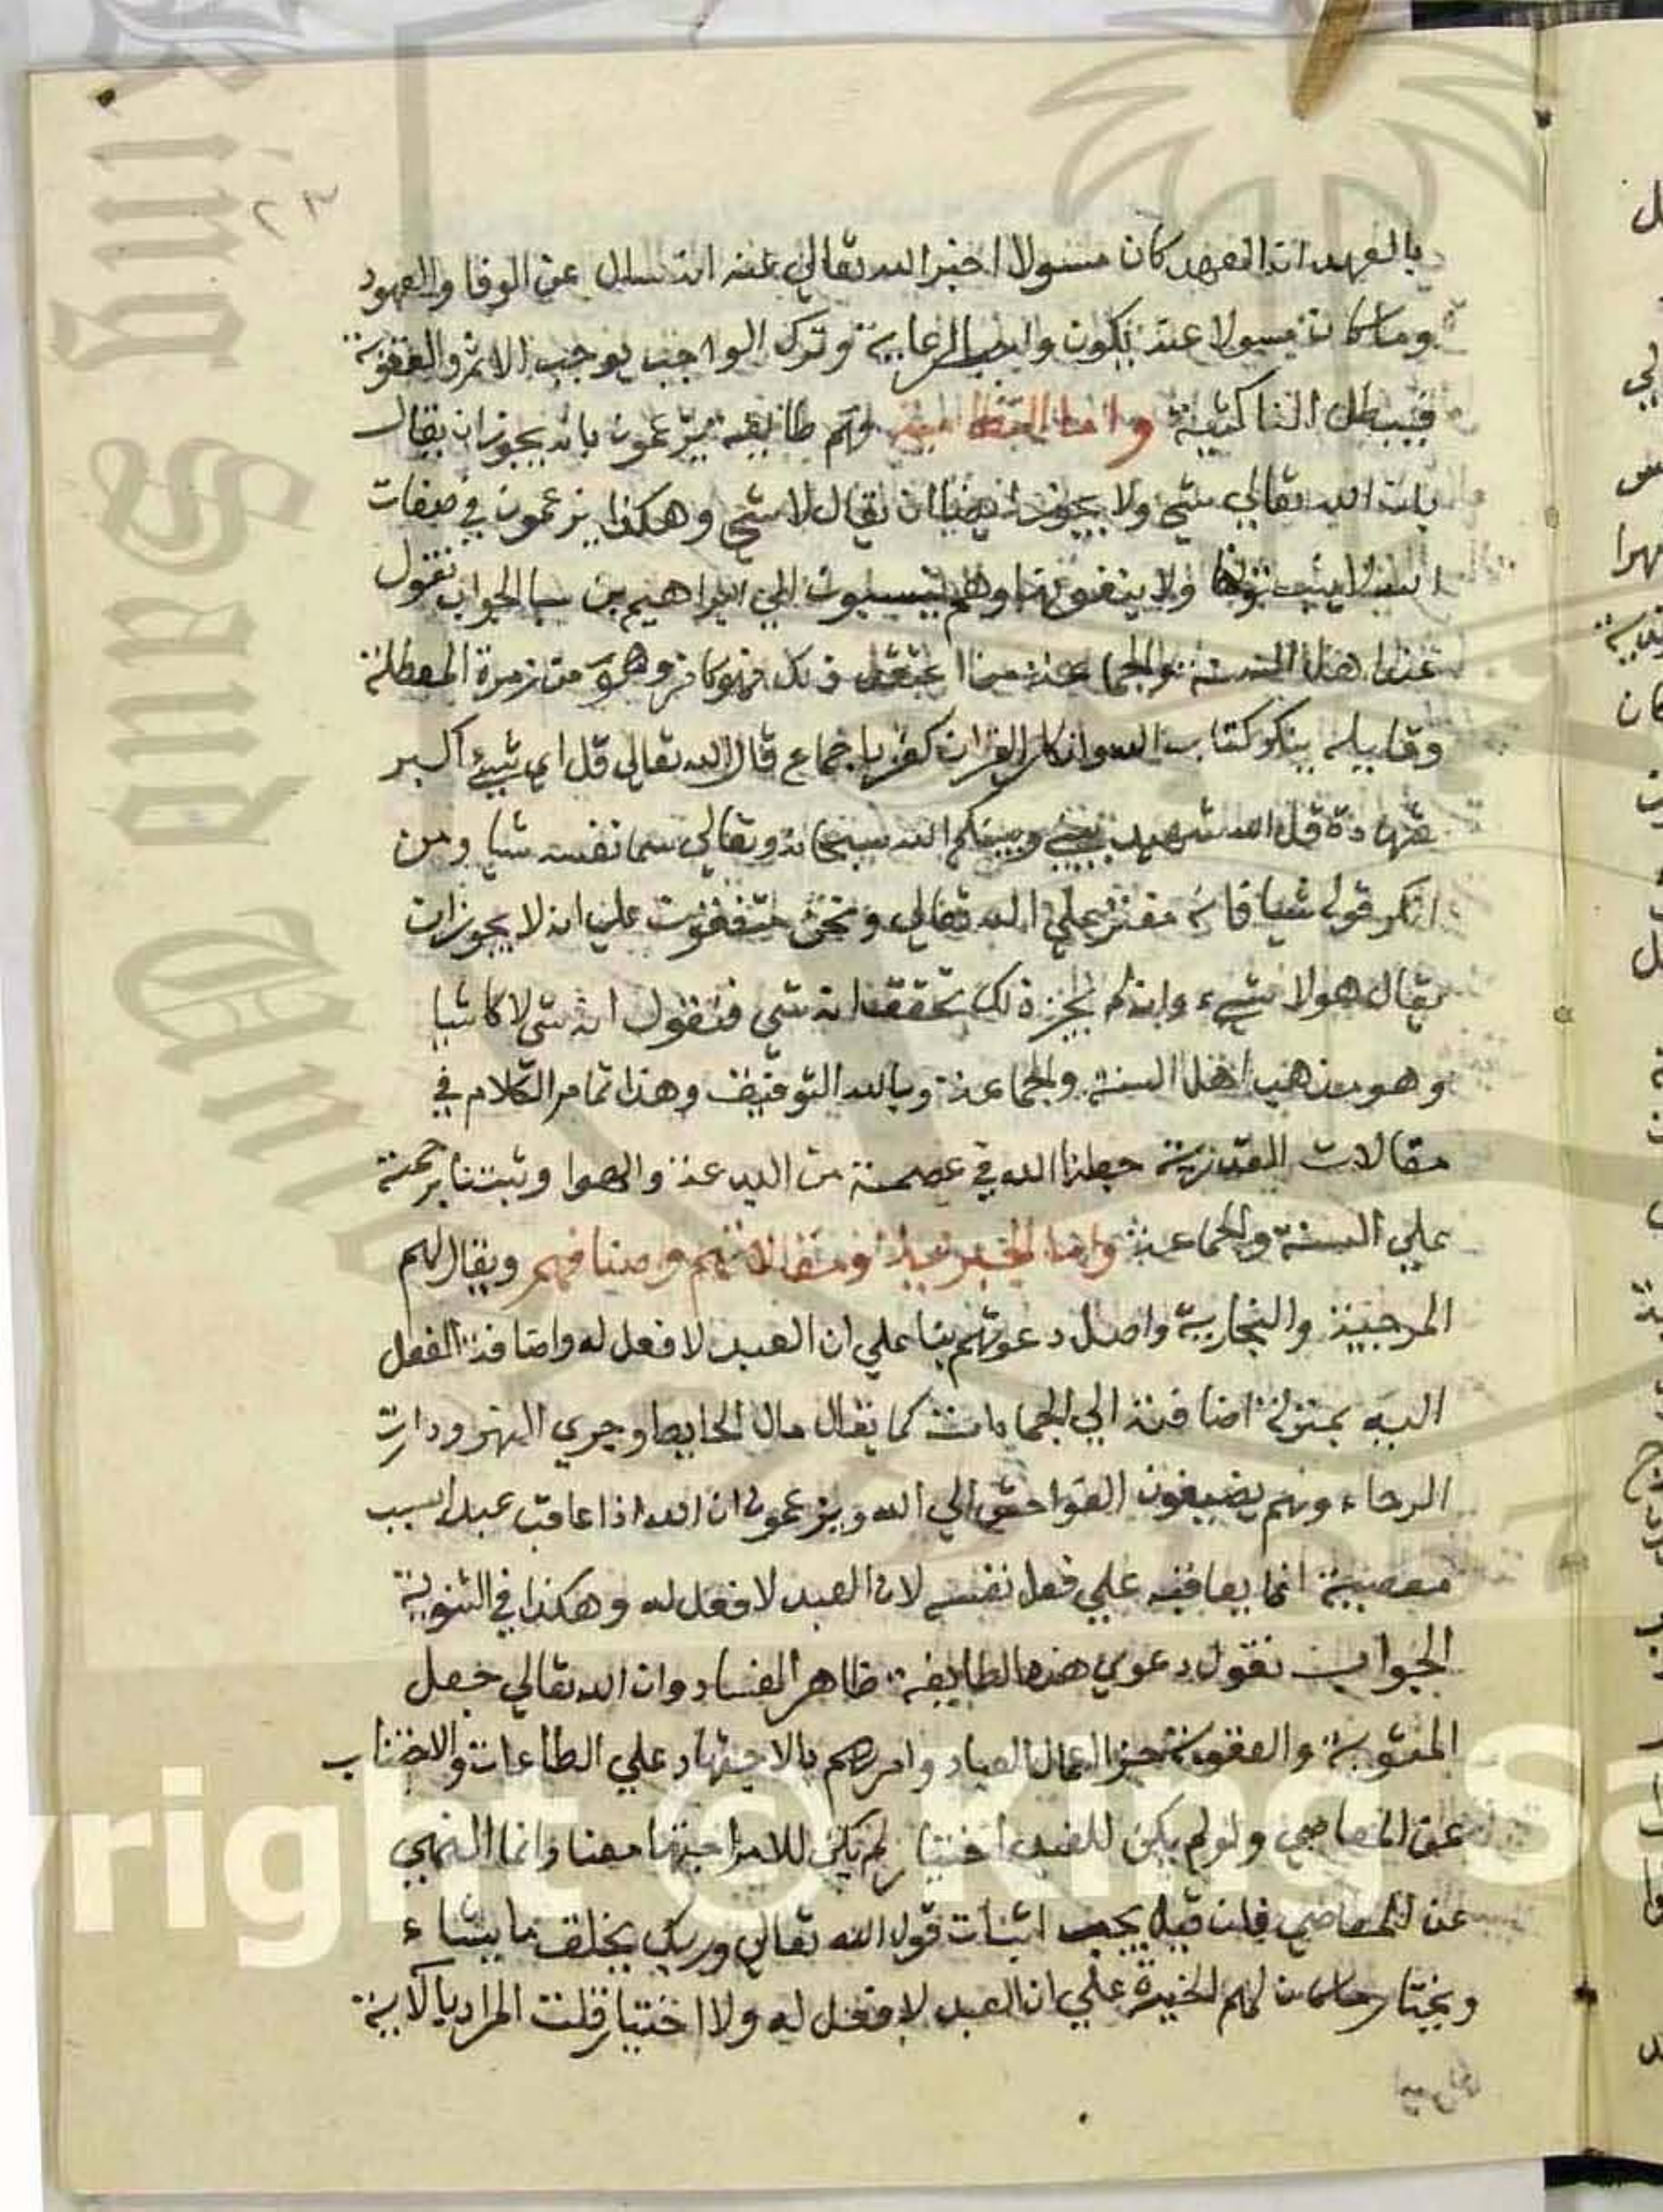 ٢٣
بالعهد ان العهد كان مسولا اخبر الله تعالي عنه انه يسال عن الوفا والعهود
وما كان مسولا عنه يكون واجب الرعاية وترك الواجب يوجب الاثم والعقوبة
فيبطل الناكثية واما النظامية وهم طايفة يزعمون بانه يجوز ان يقال
بان الله تعالي شي ولا يجوز ايضا ان يقال لا شي وهكذا يزعمون في صفات
الله لا يثبتونها ولا ينفونها وهم ينسبون الي ابراهيم بن الجواب نقول
عند اهل السنة والجماعة من اعتقد ذلك فهو كافر وهو من زمرة المعطلة
وقايله ينكر كتاب الله وانكار القران كفر باجماع قال الله تعالى قل اي شيء اكبر
شهادة قل الله شهيد بيني وبينكم الله سبحانه وتعالي سما نفسه شيا ومن
انكر قوله شيا فانه مفتر علي الله تعالي ونحن متفقون علي انه لا يجوز ان
يقال هو لا شيء واذا لم يجز ذلك تحققنا انه شي فنقول انه شي لا كاشيا
وهو مذهب اهل السنة والجماعة وبالله التوفيق وهذا تمام الكلام في
مقالات القدرية جعلنا الله في عصمة من البدعة والهوا وثبتنا برحمته
علي السنة والجماعة واما الجبرية ومقالاتهم واصنافهم ويقال لهم
المرجية والنجارية واصل دعوتهم بنا علي ان العبد لا فعل له واضافة الفعل
اليه بمنزلة اضافته الي الجمادات كما يقال مال الحايط وجري النهر ودارت
الرحاء وهم يضيفون الفواحش الي الله ويزعمون ان الله اذا عاقب عبدا بسبب
معصيته انما يعاقبه علي فعل نفسه لان العبد لا فعل له وهكذا في المثوبة
الجواب نقول دعوي هذه الطايفة ظاهر الفساد وان الله تعالي جعل
المثوبة والعقوبة جزا اعمال العباد وامرهم بالاجتهاد علي الطاعات والاجتناب
عن المعاصي ولو لم يكن للعبد اختيار لم يكن للامر معنا وانما النهي
عن المعاصي فان قيل يجب اثبات قول الله تعالي وربك يخلق ما يشاء
ويختار ما كان لهم الخيرة علي ان العبد لا فعل له ولا اختيار قلت المراد بالاية
yright © King Sa